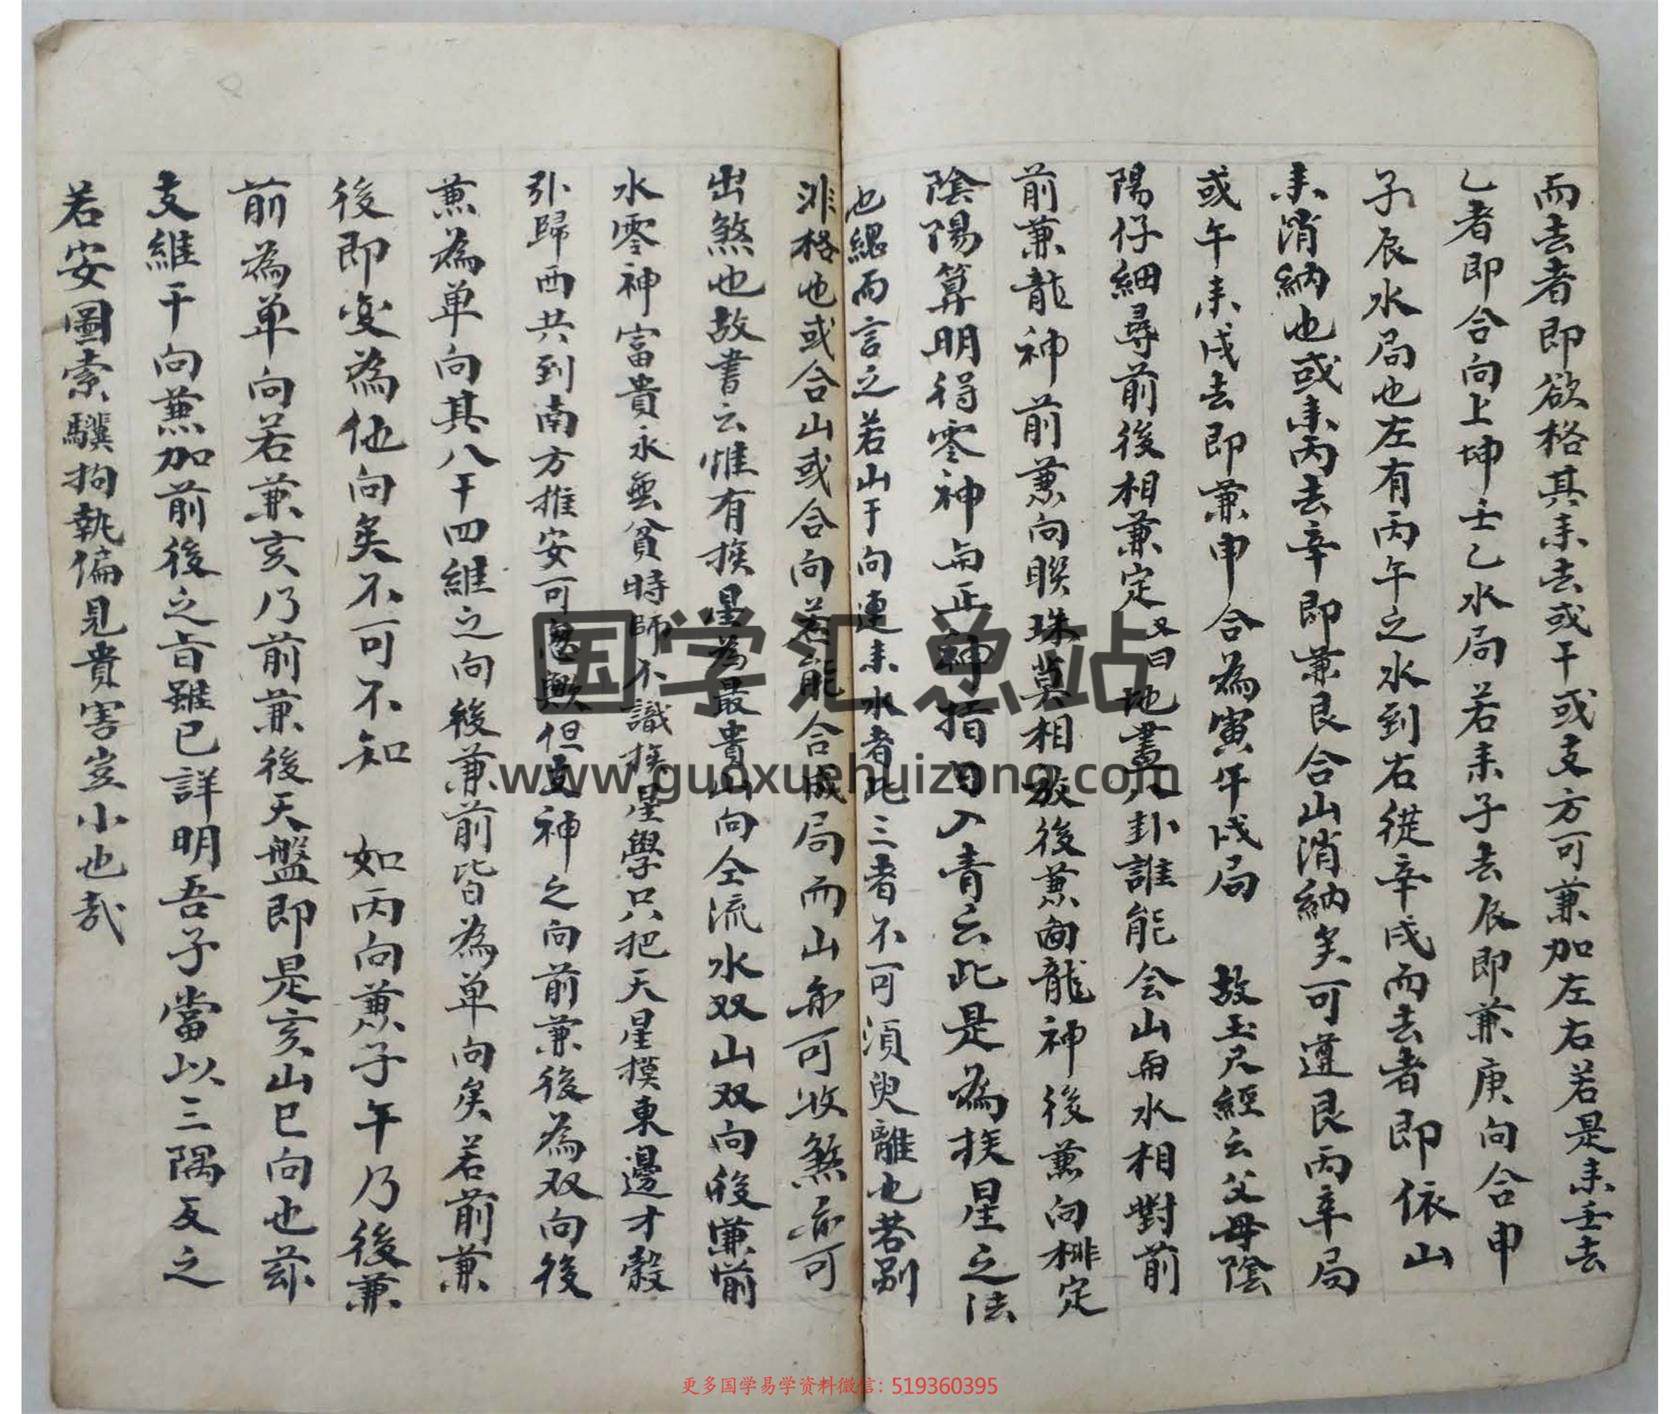 而去者即欲格其耒去或干或支方可兼加左右若是耒壬去
乙者即合向上坤壬乙水局若耒子去辰即兼庚向合申
子辰水局也左有丙午之水到右從辛戌而去者即依山
耒消納也或耒丙去辛即兼艮合山消納矣可遵艮丙辛局
或午耒戌去即兼申合為寅午戌局 故玉尺經云父母陰
陽仔細尋前後相兼定又曰地畫八卦誰能会山與水相對前
前兼龍神前兼向聯珠莫相放後兼龍神後兼向排定
陰陽算明得零神與正神指日入青云此是為挨星之法
也總而言之若山于向連耒水者此三者不可須臾離也若別
非格也或合山或合向若能合成局而山亦可收煞亦可
出煞也故書云惟有挨星為最貴山向仝流水双山双向後兼前
水零神富貴永無貧時師不識挨星學只把天星摸東邊才殼
引歸西共到南方推安可忽歟但支神之向前兼後為双向後
兼為单向其八干四維之向後兼前皆為单向矣若前兼
後即变為他向矣不可不知 如丙向兼子午乃後兼
前為单向若兼亥乃前兼後天盤即是亥山巳向也茲
支維干向兼加前後之旨雖已詳明吾子當以三隅反之
若安圖索驥拘執偏見貴害豈小也哉
国学汇总站
www.guoxuehuizong.com
更多国学易学资料微信：519360395